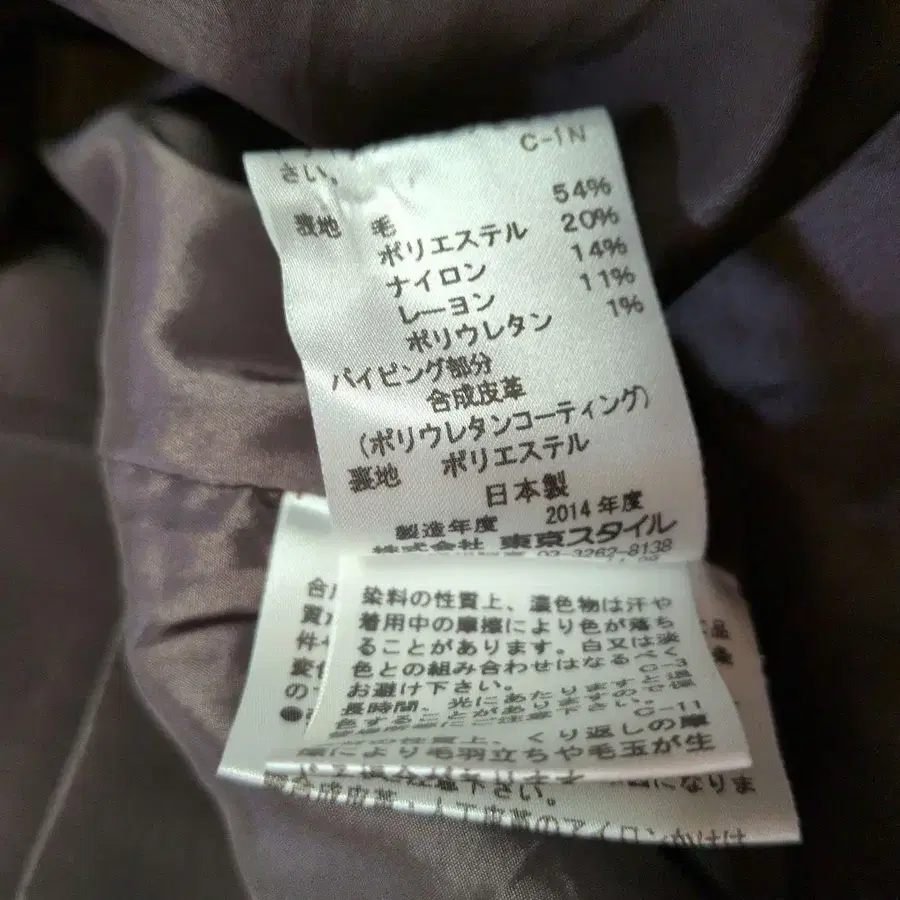 C-1N
さい。
表地 毛 54%
ポリエステル 20%
ナイロン 14%
レーヨン 11%
ポリウレタン 1%
パイピング部分
合成皮革
(ポリウレタンコーティング)
裏地 ポリエステル
日本製
製造年度 2014年度
株式会社 東京スタイル
03-3262-8138
染料の性質上、濃色物は汗や
着用中の摩擦により色が落ち
ることがあります。白又は淡
色との組み合わせはなるべく
お避け下さい。 C-3
長時間、光にあたりますと退
色することがありますので保
C-11
の性質上、くり返しの摩
擦により毛羽立ちや毛玉が生
合成皮革・人工皮革のアイロンがけは